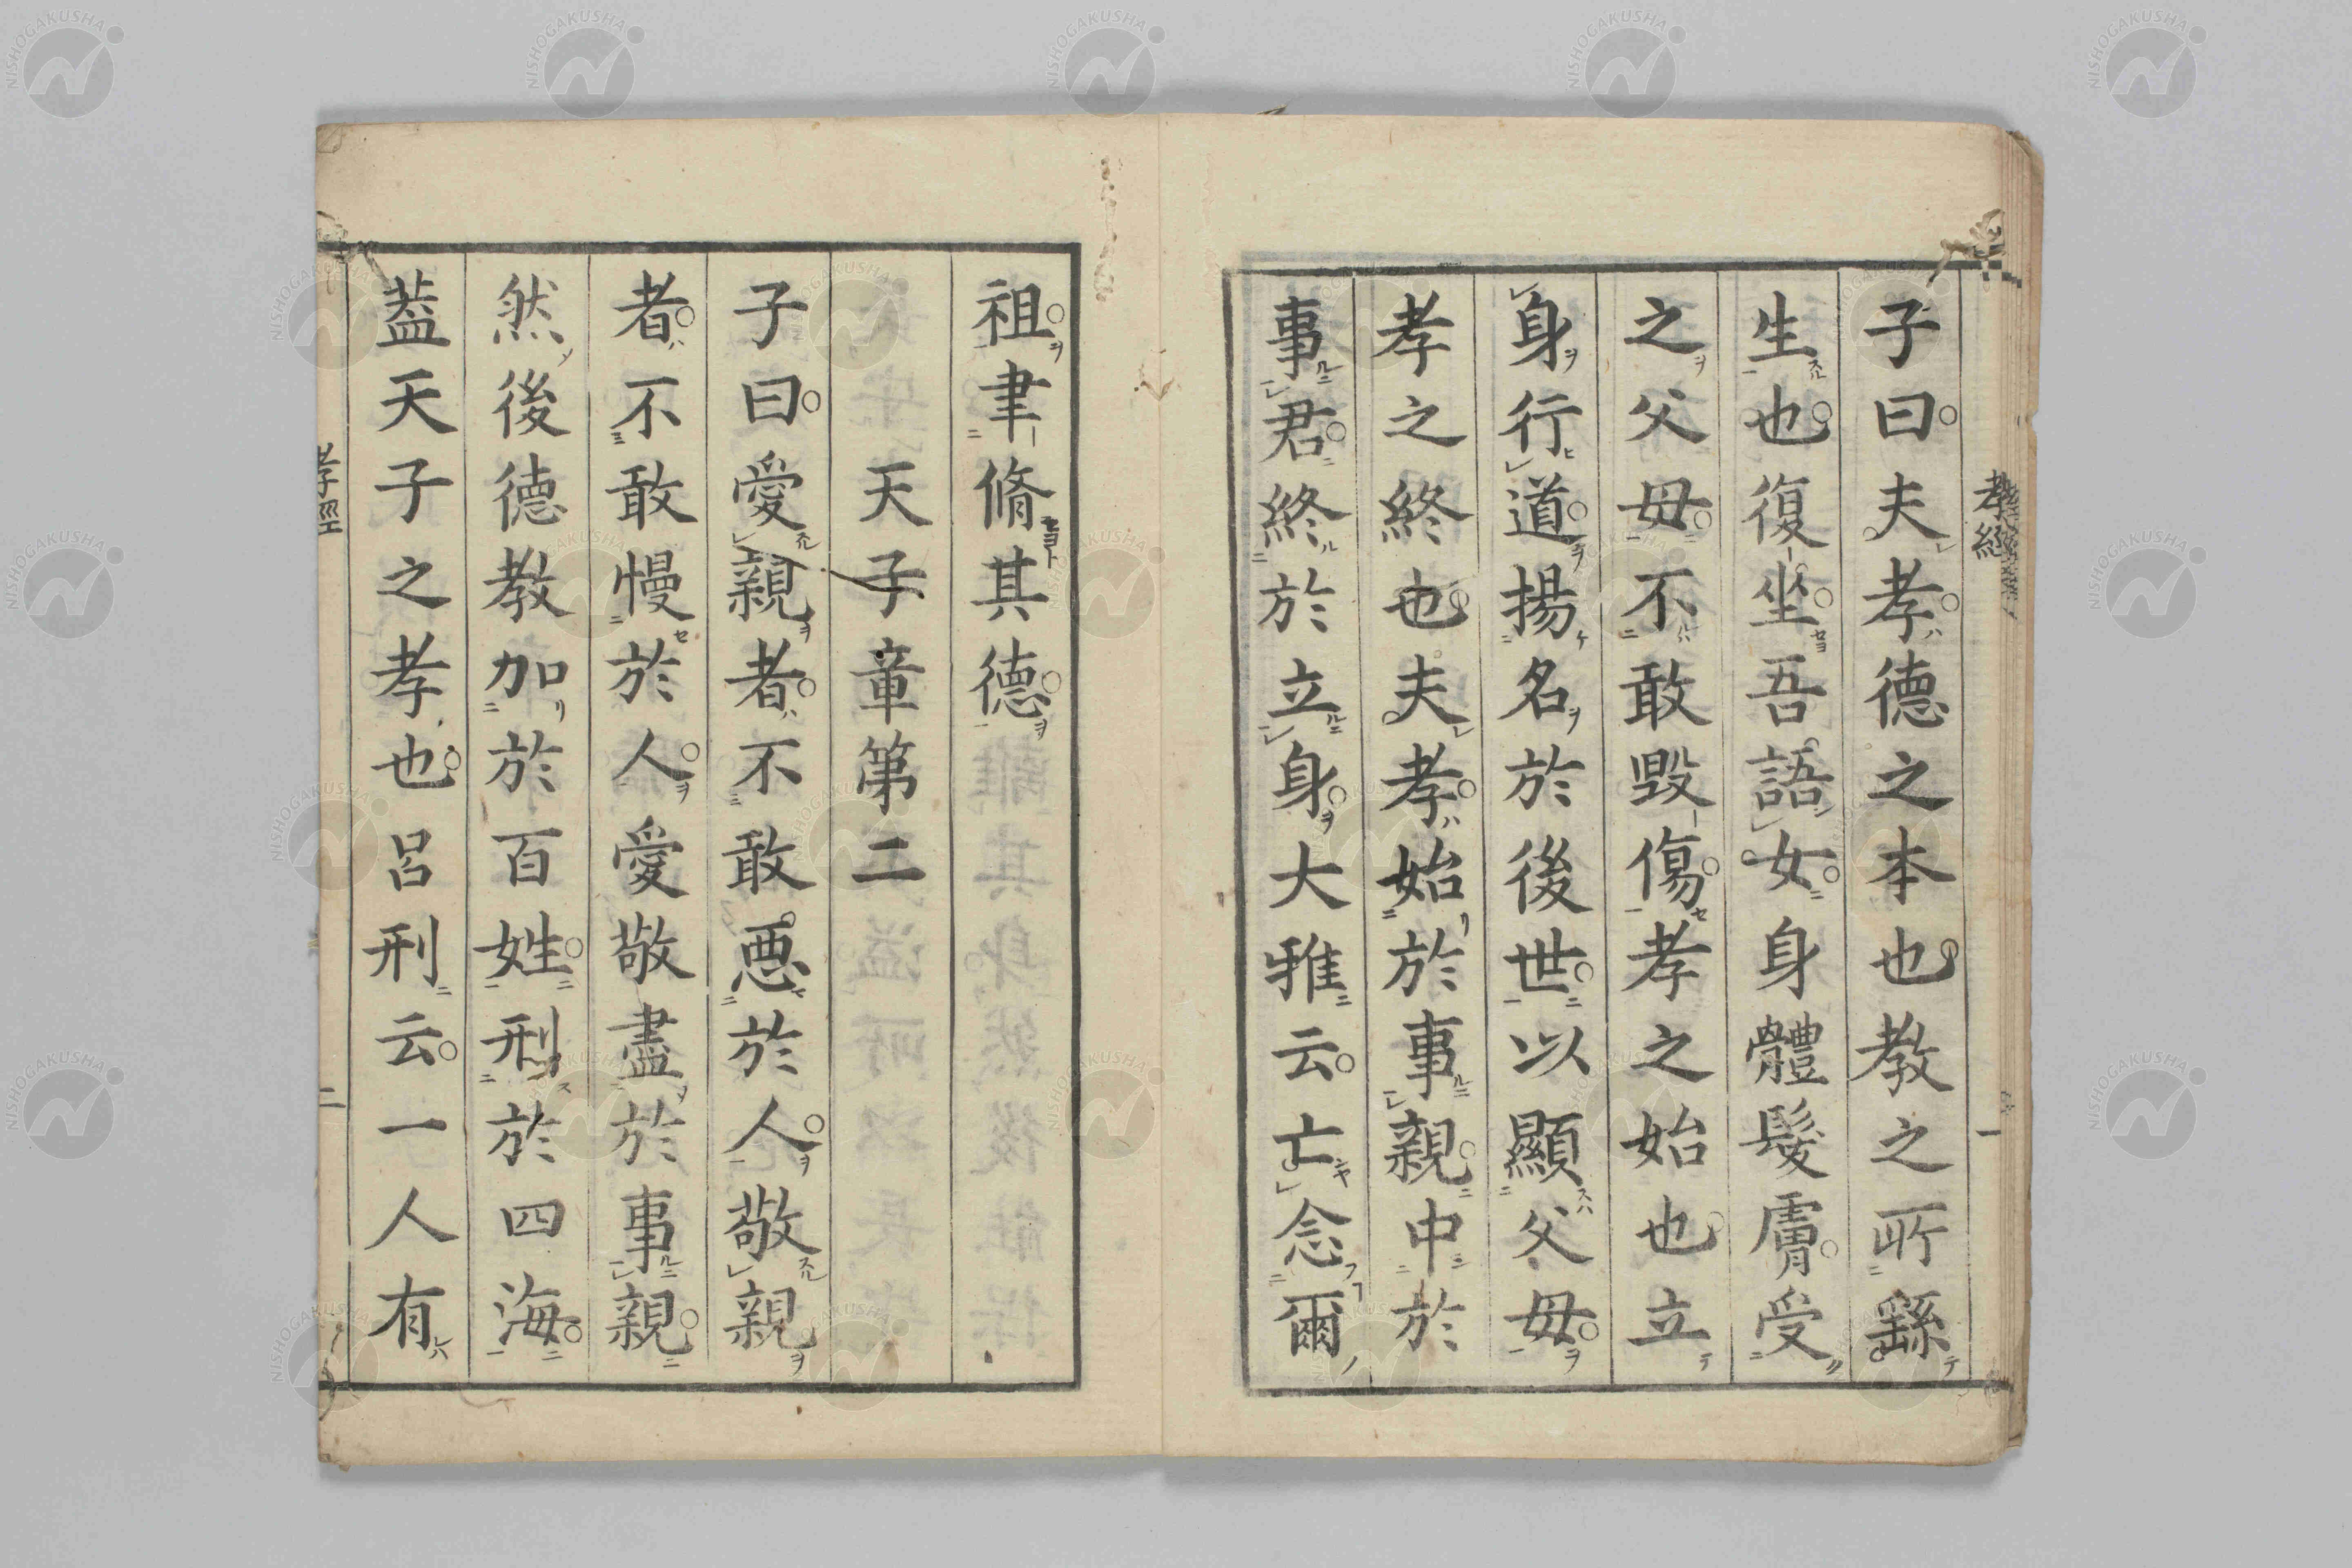 子曰夫孝德之本也教之所繇
生也復坐吾語女身體髮膚受
之父母不敢毀傷孝之始也立
身行道揚名於後世以顯父母
孝之終也夫孝始於事親中於
事君終於立身大雅云亡念爾
祖聿脩其德
天子章第二
子曰愛親者不敢惡於人敬親
者不敢慢於人愛敬盡於事親
然後德教加於百姓刑於四海
蓋天子之孝也呂刑云一人有
孝經
一
孝經
二
NISHOGAKUSHA